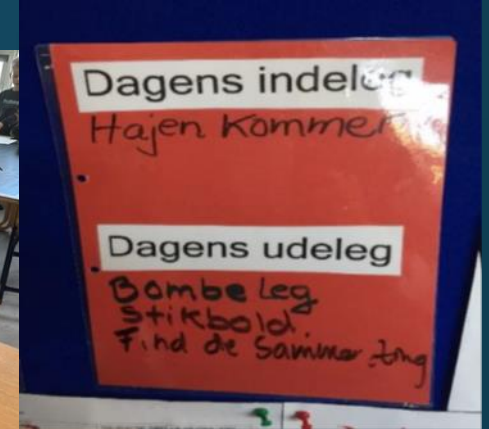 Dagens indeleg
Hajen Kommer
Dagens udeleg
Bombe Leg
Stikbold.
Find de Samme ting